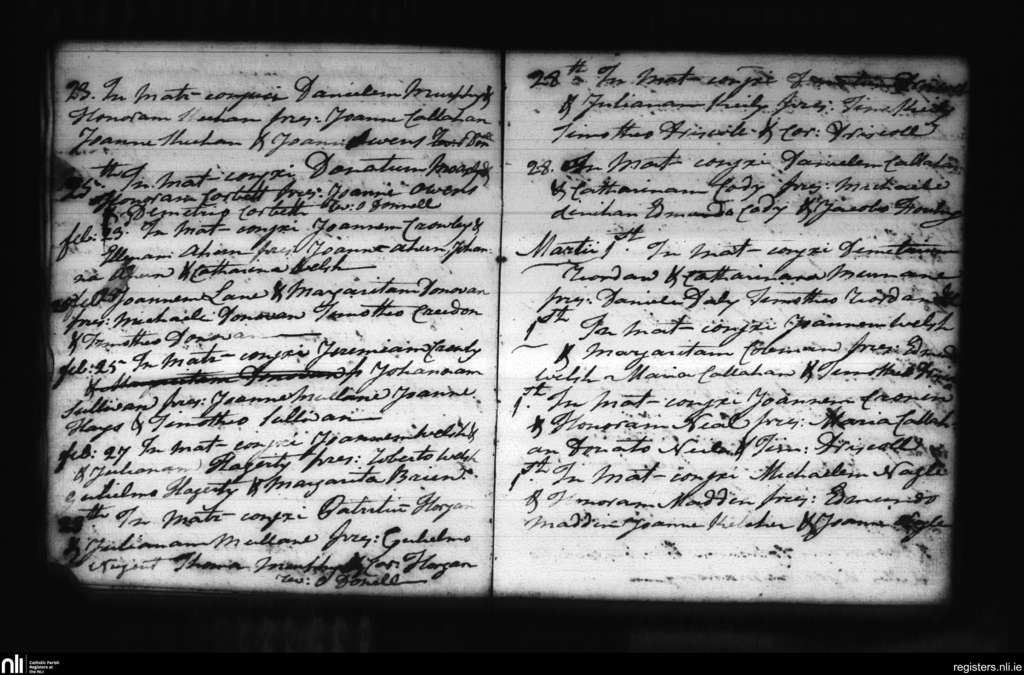 23. In Mat: conjxi Danielem Murphy &
Honoram Meehan pres: Joanne Callahan
Joanne Meehan & Joanne Owens
25th In Mat conjxi Donatum Murphy &
Honoram Corbett pres: Joanne Owens
& Demetrio Corbett Tw: O Donnell
feb: 25. In Mat- conjxi Joannem Crowley &
Ahern pres: Joanne Ahern Johan
na Ahern & Catharina Welsh
feb: Joannem Lane & Margaritam Donovan
pres: Michaele Donovan Timotheo Creedon
& Timotheo Donovan
feb: 25 In Mat- conjxi Jeremiam Crowly
& Johanam
Sullivan pres: Joanne Mullane Joanne
Hays & Timotheo Sullivan
feb: 27 In Mat conjxi Joannem Welsh &
& Julianam Hagerty pres: Roberto Welsh
Gulielmo Hagerty & Margarita Brien
28th In Mat- conjxi Patritium Horgan
& Julianam Mullane pres: Gulielmo
Nugent Thoma Murphy & Cor: Horgan
Tw: O Donell
28th In Mat- conjxi
& Julianam Kiely pres: Timo Kiely
Timotheo Driscole & Cor: Driscoll
28. In Mat conjxi Danielem Callahan
& Catharinam Cody pres: Michaele
Lenihan Edmundo Cody & Jacobo
Martii 1st In Mat conjxi Demetrium
Riordan & Catharinam
pres: Daniele Daly Timotheo Riordan &
1st In Mat- conjxi Joannem Welsh
& Margaritam Coleman pres: Edmdo
Welsh Maria Callahan & Timotheo
1st. In Mat conjxi Joannem Cronin
& Honoram Neal pres: Maria Callah-
an Donato Neill & Jerr: Driscoll
1st In Mat- conjxi Michaelem Nagle
& Honoram Madden pres: Edmundo
Madden Joanne Kelcher & Joanne Nagle
nli Catholic Parish
Registers at
the NLI
registers.nli.ie